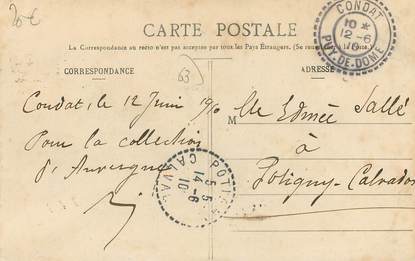 20€
CARTE POSTALE
La Correspondance au recto n'est pas acceptée par tous les Pays Étrangers. (Se renseigner
CORRESPONDANCE
63
ADRESSE
CONDAT
10 *
12-6
PUY-DE-DOME
Condat, le 12 Juin 1910
Pour la collection
d'Auvergne
M lle Edmée Sallé
à
Potigny-Calvados
POTIGNY
5 5
14-6
10
CALVADOS